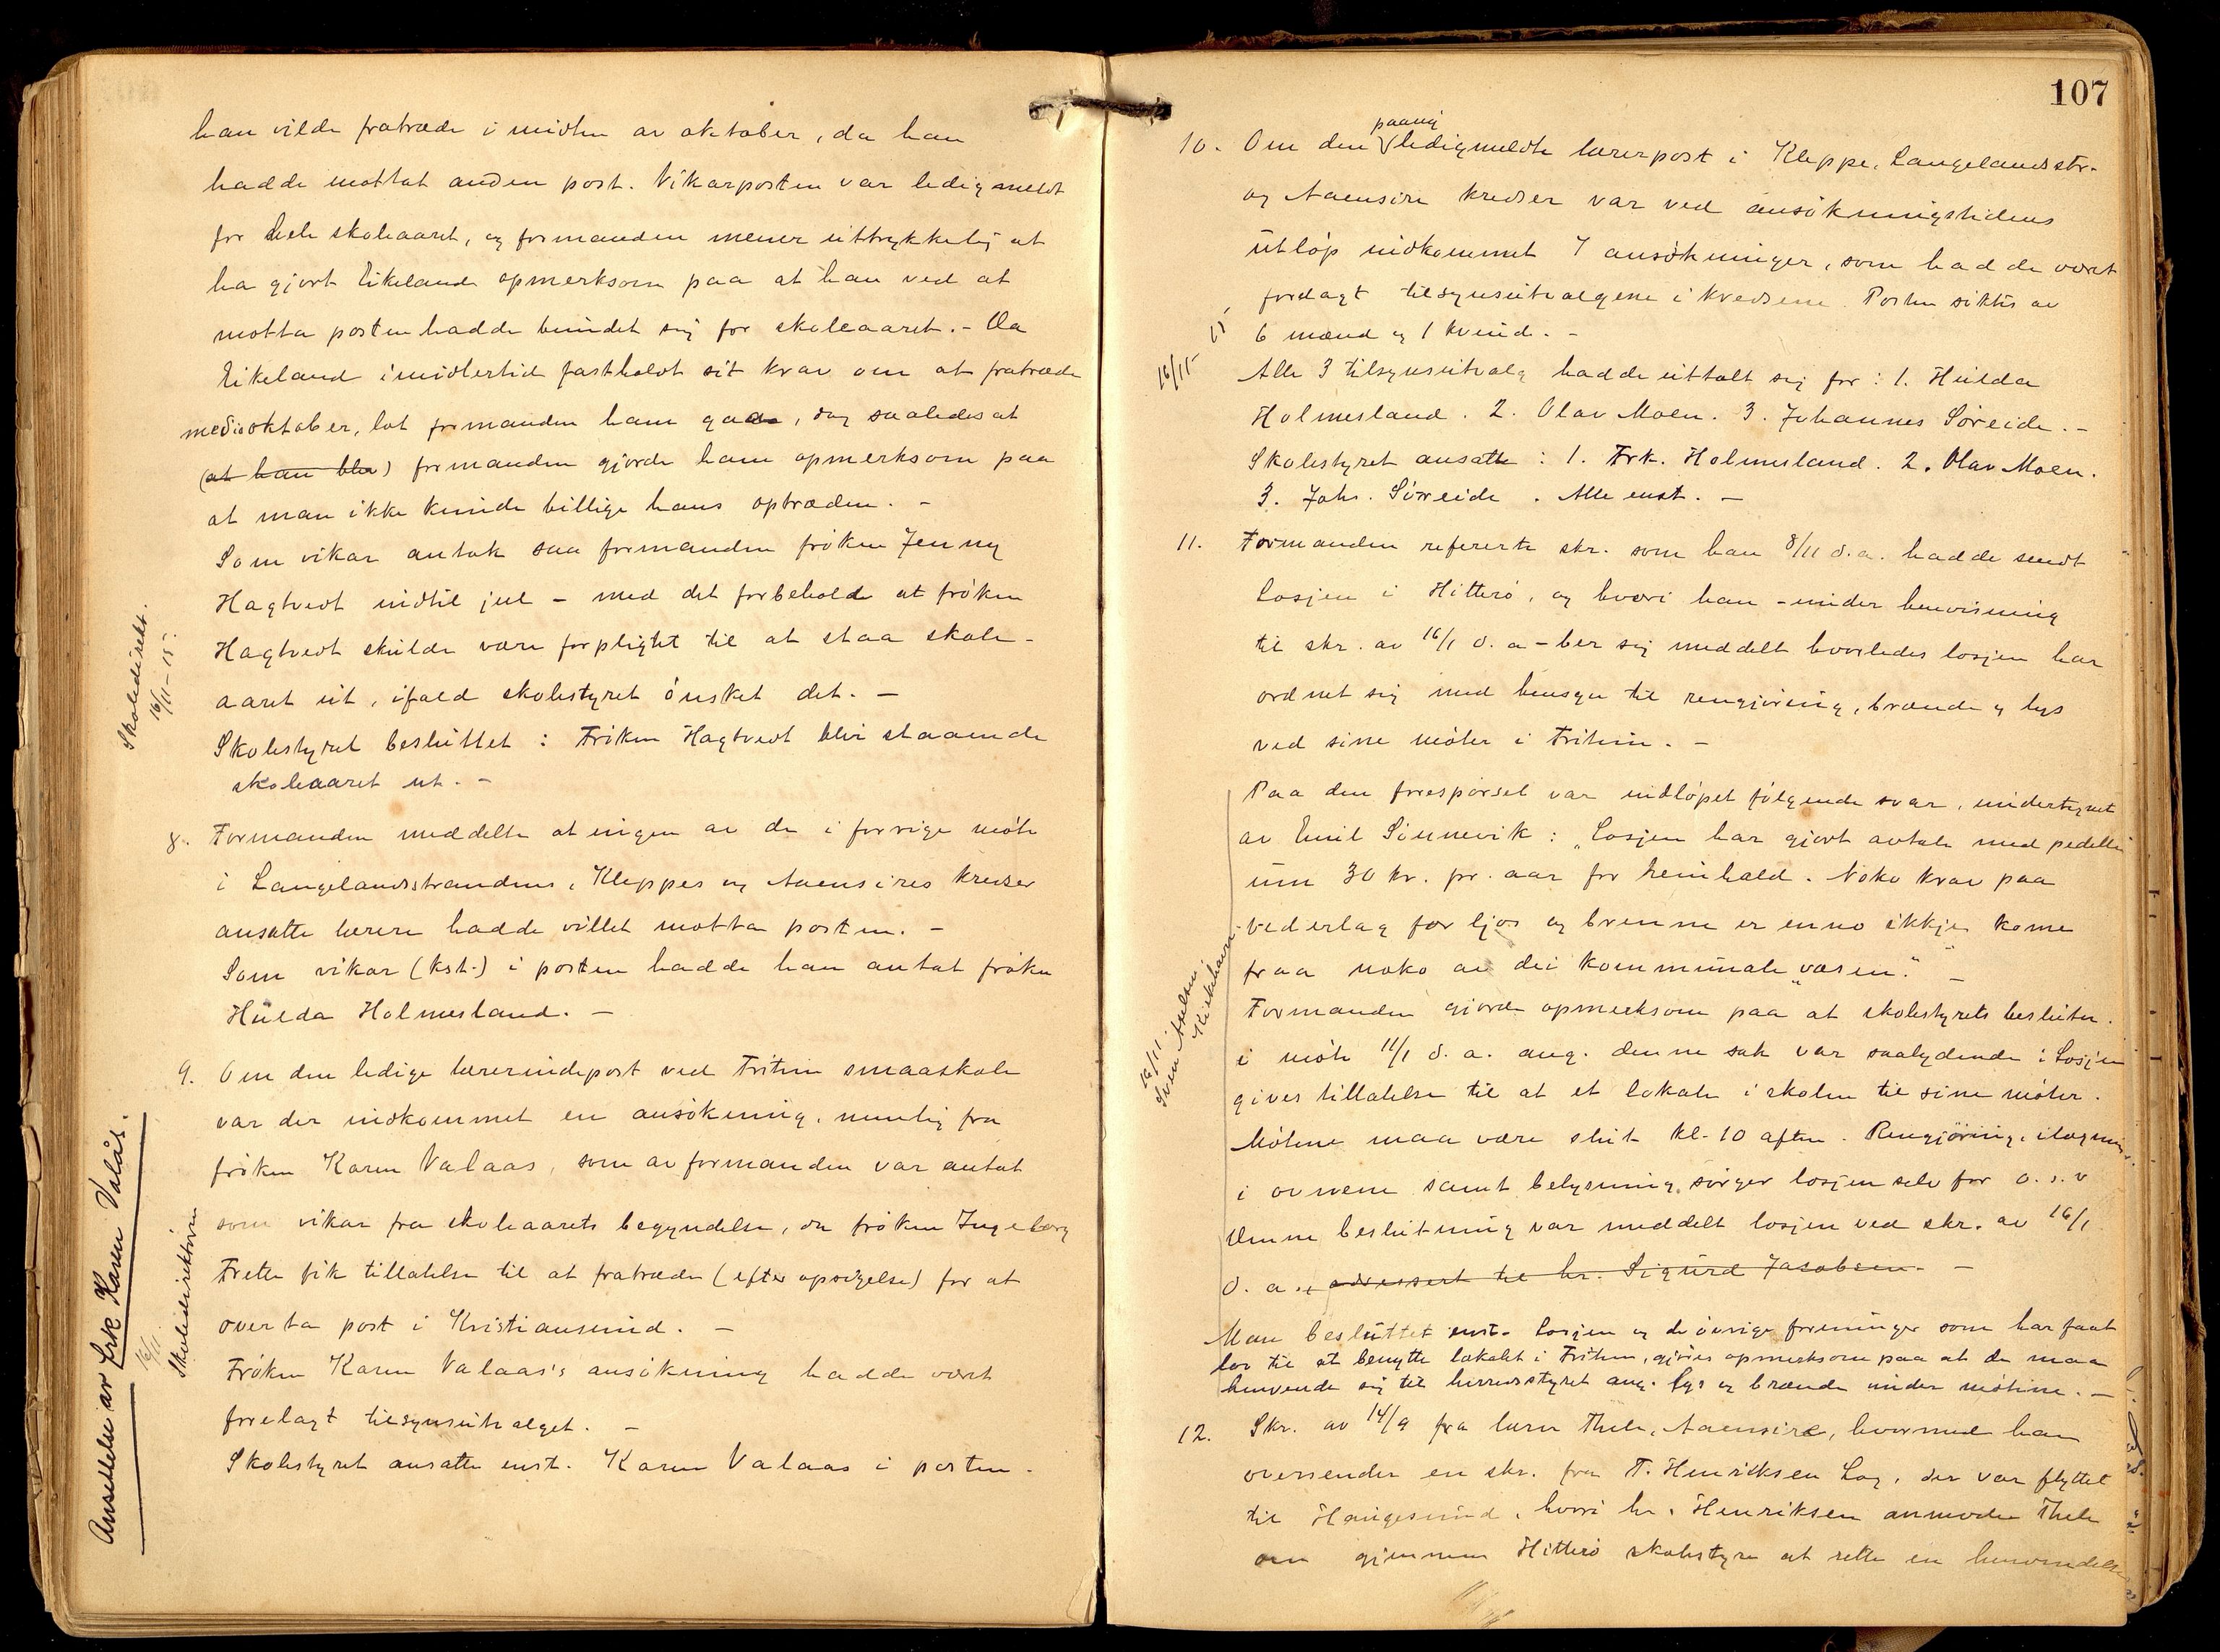 han vilde fratræde i midten av oktober, da han
hadde mottat anden post. Vikarposten var ledigmeldt
for hele skoleaaret, og formanden mener uttrykkelig at
ha gjort Eikeland opmerksom paa at han ved at
motta posten hadde bundet sig for skoleaaret. - Da
Eikeland imidlertid fastholdt sit krav om at fratræde
medio oktober, lot formanden ham gaa, dog saaledes at
(at han blev) formanden gjorde ham opmerksom paa
at man ikke kunde billige hans optræden. -
Som vikar antok saa formanden frøken Jenny
Hagtvedt indtil jul - med det forbehold at frøken
Hagtvedt skulde være forpligtet til at staa skole-
aaret ut, ifald skolestyret ønsket det. -
Skolestyret besluttet: Frøken Hagtvedt blir staaende
skoleaaret ut. -
Skoledirekt.
16/11-15.
8. Formanden meddelte at ingen av de i forrige møte
i Langelandsstrandens, Kleppes og Aaensires kredser
ansatte lærere hadde villet motta posten. -
Som vikar (kst.) i posten hadde han antat frøken
Hulda Holmesland. -
9. Om den ledige lærerindepost ved Fritun smaaskole
var der indkommet en ansøkning, nemlig fra
frøken Karen Valaas, som av formanden var antat
som vikar fra skoleaarets begyndelse, da frøken Ingeborg
Frette fik tillatelse til at fratræde (efter opsigelse) for at
overta post i Kristiansund. -
Frøken Karen Valaas's ansøkning hadde været
forelagt tilsynsutvalget. -
Skolestyret ansatte enst. Karen Valaas i posten.
Ansettelse av Frk Karen Valås.
16/11.
Skoledirektøren
107
10. Om den paany ledigmeldte lærerpost i Kleppe, Langelandsstr.
og Aaensire kredser var ved ansøkningstidens
utløp indkommet 7 ansøkninger, som hadde været
forelagt tilsynsutvalgene i kredsene. Posten søktes av
6 mænd og 1 kvind. -
16/11-15
Alle 3 tilsynsutvalg hadde uttalt sig for: 1. Hulda
Holmesland. 2. Olav Moen. 3. Johannes Søreide. -
Skolestyret ansatte: 1. Frk. Holmesland. 2. Olav Moen.
3. Johs. Søreide. Alle enst. -
11. Formanden refererte skr. som han 8/11 d.a. hadde sendt
losjen i Hitterø, og hvori han - under henvisning
til skr. av 16/1 d.a - ber sig meddelt hvorledes losjen har
ordnet sig med hensyn til rengjøring, brænde og lys
ved sine møter i Fritun. -
Paa den forespørsel var indløpet følgende svar, undertegnet
av Emil Sunnevik: "Losjen har gjort avtale med pedellen
um 30 kr. pr. aar for reinhald. Noko krav paa
vederlag for ljos og brenne er enno ikkje kome
fraa noko av dei kommunale "væsen". -
Formanden gjorde opmerksom paa at skolestyrets beslutn.
i møte 11/1 d.a. ang. denne sak var saalydende: Losjen
gives tillatelse til at et lokale i skolen til sine møter.
Møtene maa være slut kl. 10 aften. Rengjøring, ilægning
i ovnene samt belysning sørger losjen selv for o.s.v
Denne beslutning var meddelt losjen ved skr. av 16/1
d.a., adressert til hr. Sigurd Jacobsen. -
Man besluttet enst. Losjen og de øvrige foreninger som har faat
lov til at benytte lokalet i Fritun, gjøres opmerksom paa at de maa
henvende sig til herredsstyret ang. lys og brænde under møtene. -
16/11
12. Skr. av 14/9 fra lærer Thele, Aaensire, hvormed han
oversender en skr. fra T. Henriksen Log, der var flyttet
til Haugesund, hvori hr. Henriksen anmoder Thele
om gjennem Hitterø skolestyre at rette en henvendelse